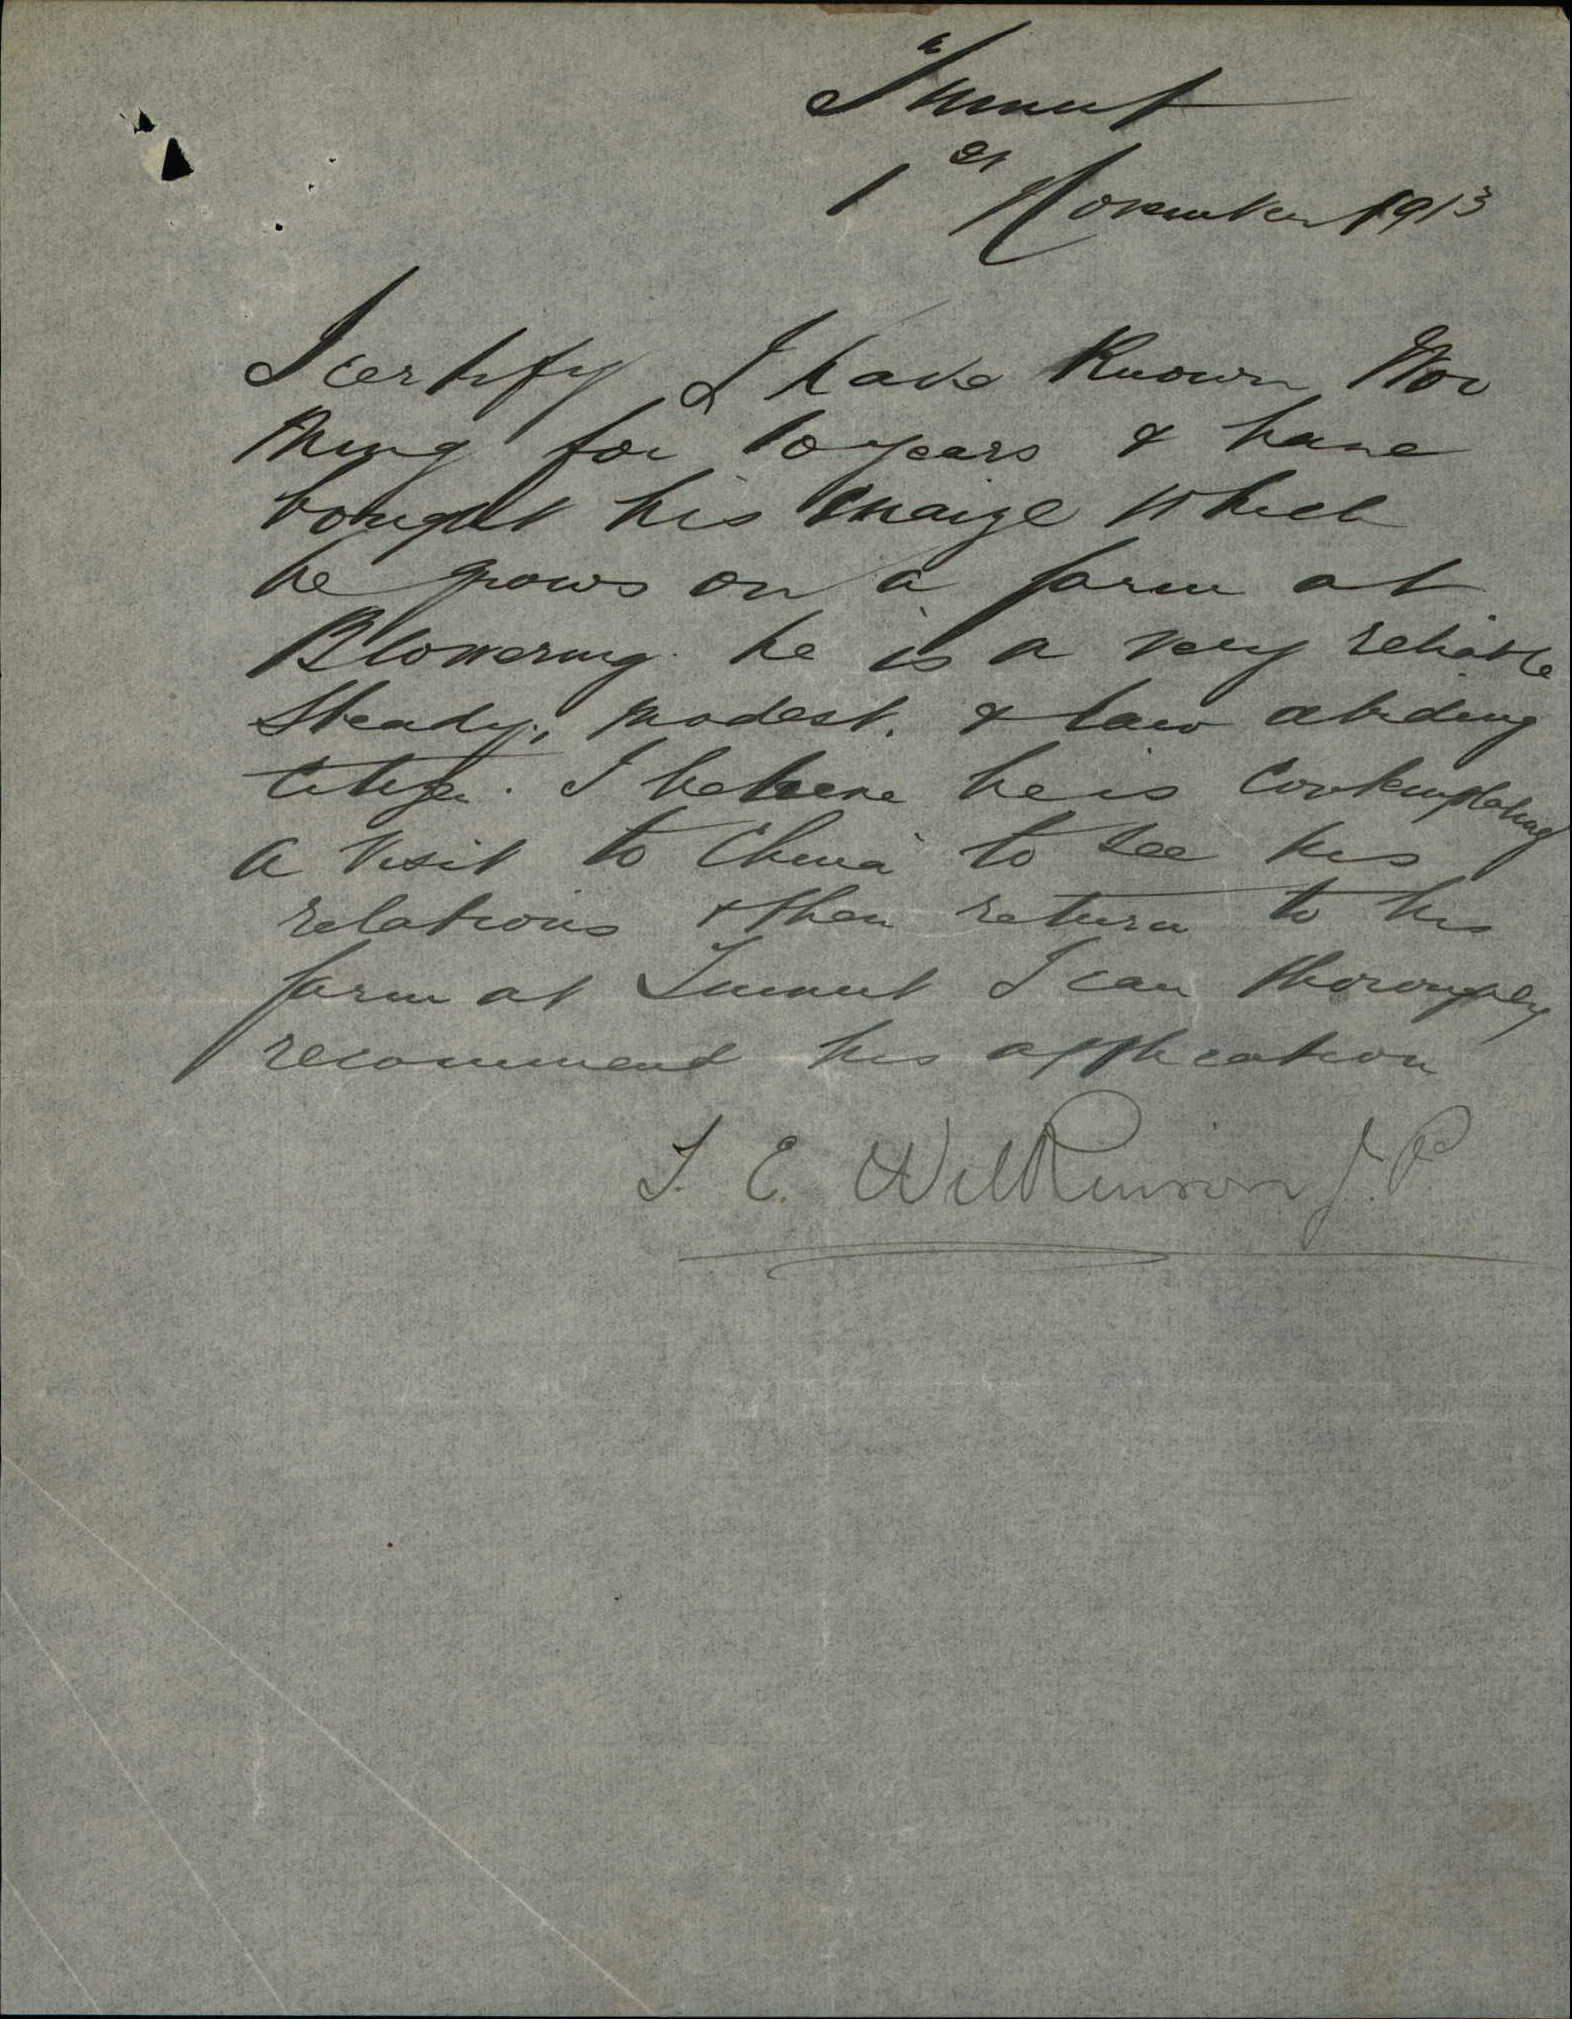 Tumut
1st November 1913
I certify I have known Wor
Ming for 10 years & have
bought his maize which
he grows on a farm at
Blowering. he is a very reliable
Steady, modest, & law abiding
Citizen. I believe he is Contemplating
a visit to China to see his
relations & then return to his
farm at Tumut I can thoroughly
recommend his application
T. E. Wilkinson J.P.